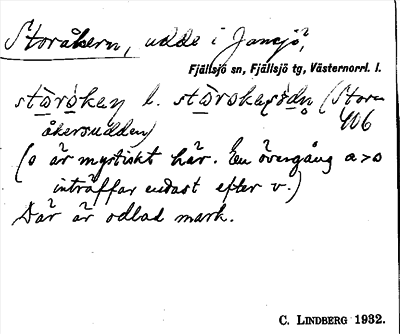 Storåkern, udde i Jansjö,
Fjällsjö sn, Fjällsjö tg, Västernorrl. l.
l. (Storå
åkersudden) 406
(o är mystiskt här. En övergång a>o
inträffar endast efter v.)
Där är odlad mark.
C. LINDBERG 1932.